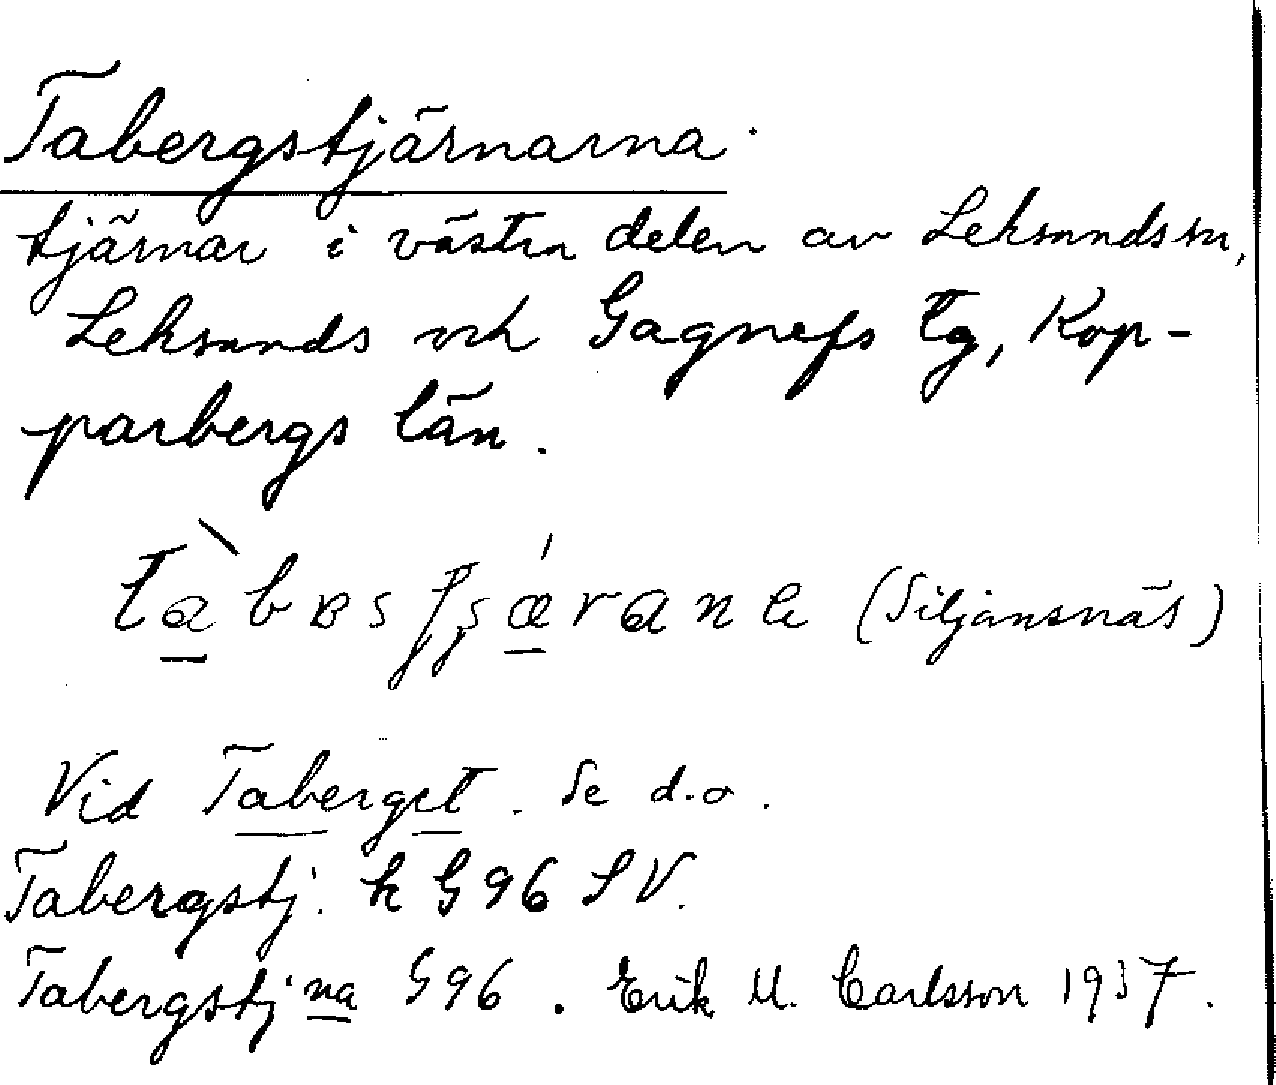 Tabergstjärnarna
tjärnar i västra delen av Leksands sn,
Leksands och Gagnefs tg, Kop-
parbergs län.
(Siljansnäs)
Vid Taberget. Se d.o.
Tabergstj. k G 96 SV.
Tabergstj na G 96. Erik M. Carlsson 1937.